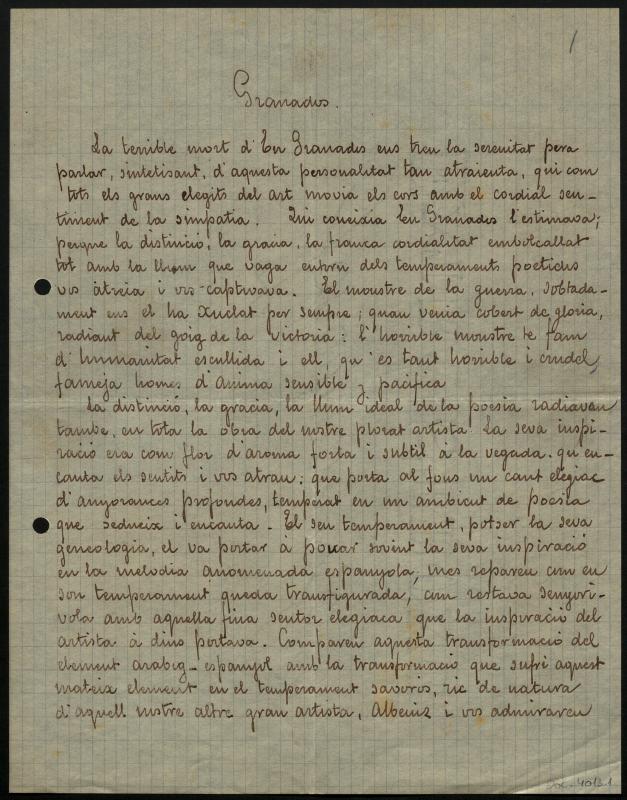 1
Granados.
La terrible mort d'En Granados ens treu la serenitat pera
parlar, sintetisant, d'aquesta personalitat tan atraienta, qui com
tots els grans elegits del art movia els cors amb el cordial sen-
timent de la simpatia. Qui coneixia En Granados l'estimava;
perque la distinció, la gracia, la franca cordialitat embolcallat
tot amb la llum que vaga entorn dels temperaments poetichs
vos atreia i vos captivava. El monstre de la guerra, sobtada-
ment ens el ha xuclat per sempre; quan venia cobert de gloria,
radiant del goig de la victoria: l'horrible monstre te fam
d'humanitat escullida i ell, qu'es tant horrible i cruel,
fameja homes d'anima sensible y pacifica
La distinció, la gracia, la llum ideal de la poesia radiaven
tambe, en tota la obra del nostre plorat artista. La seva inspi-
ració era com flor d'aroma forta i subtil á la vegada. qu'en-
canta els sentits i vos atrau; que porta al fons un cant elegiac
d'anyorances profondes, temperat en un ambient de poesia
que sedueix i encanta. El seu temperament, potser la seva
geneologia, el va portar à pouar sovint la seva inspiració
en la melodia anomenada espanyola, mes repareu com en
son temperament queda transfigurada, com restava senyori-
vola amb aquella fina sentor elegiaca que la inspiració del
artista á dins portava. Compareu aquesta transformació del
element arabig-espanyol amb la transformació que sufri aquest
mateix element en el temperament saborós, ric de natura
d'aquell nostre altre gran artista, Albeniz i vos admirareu